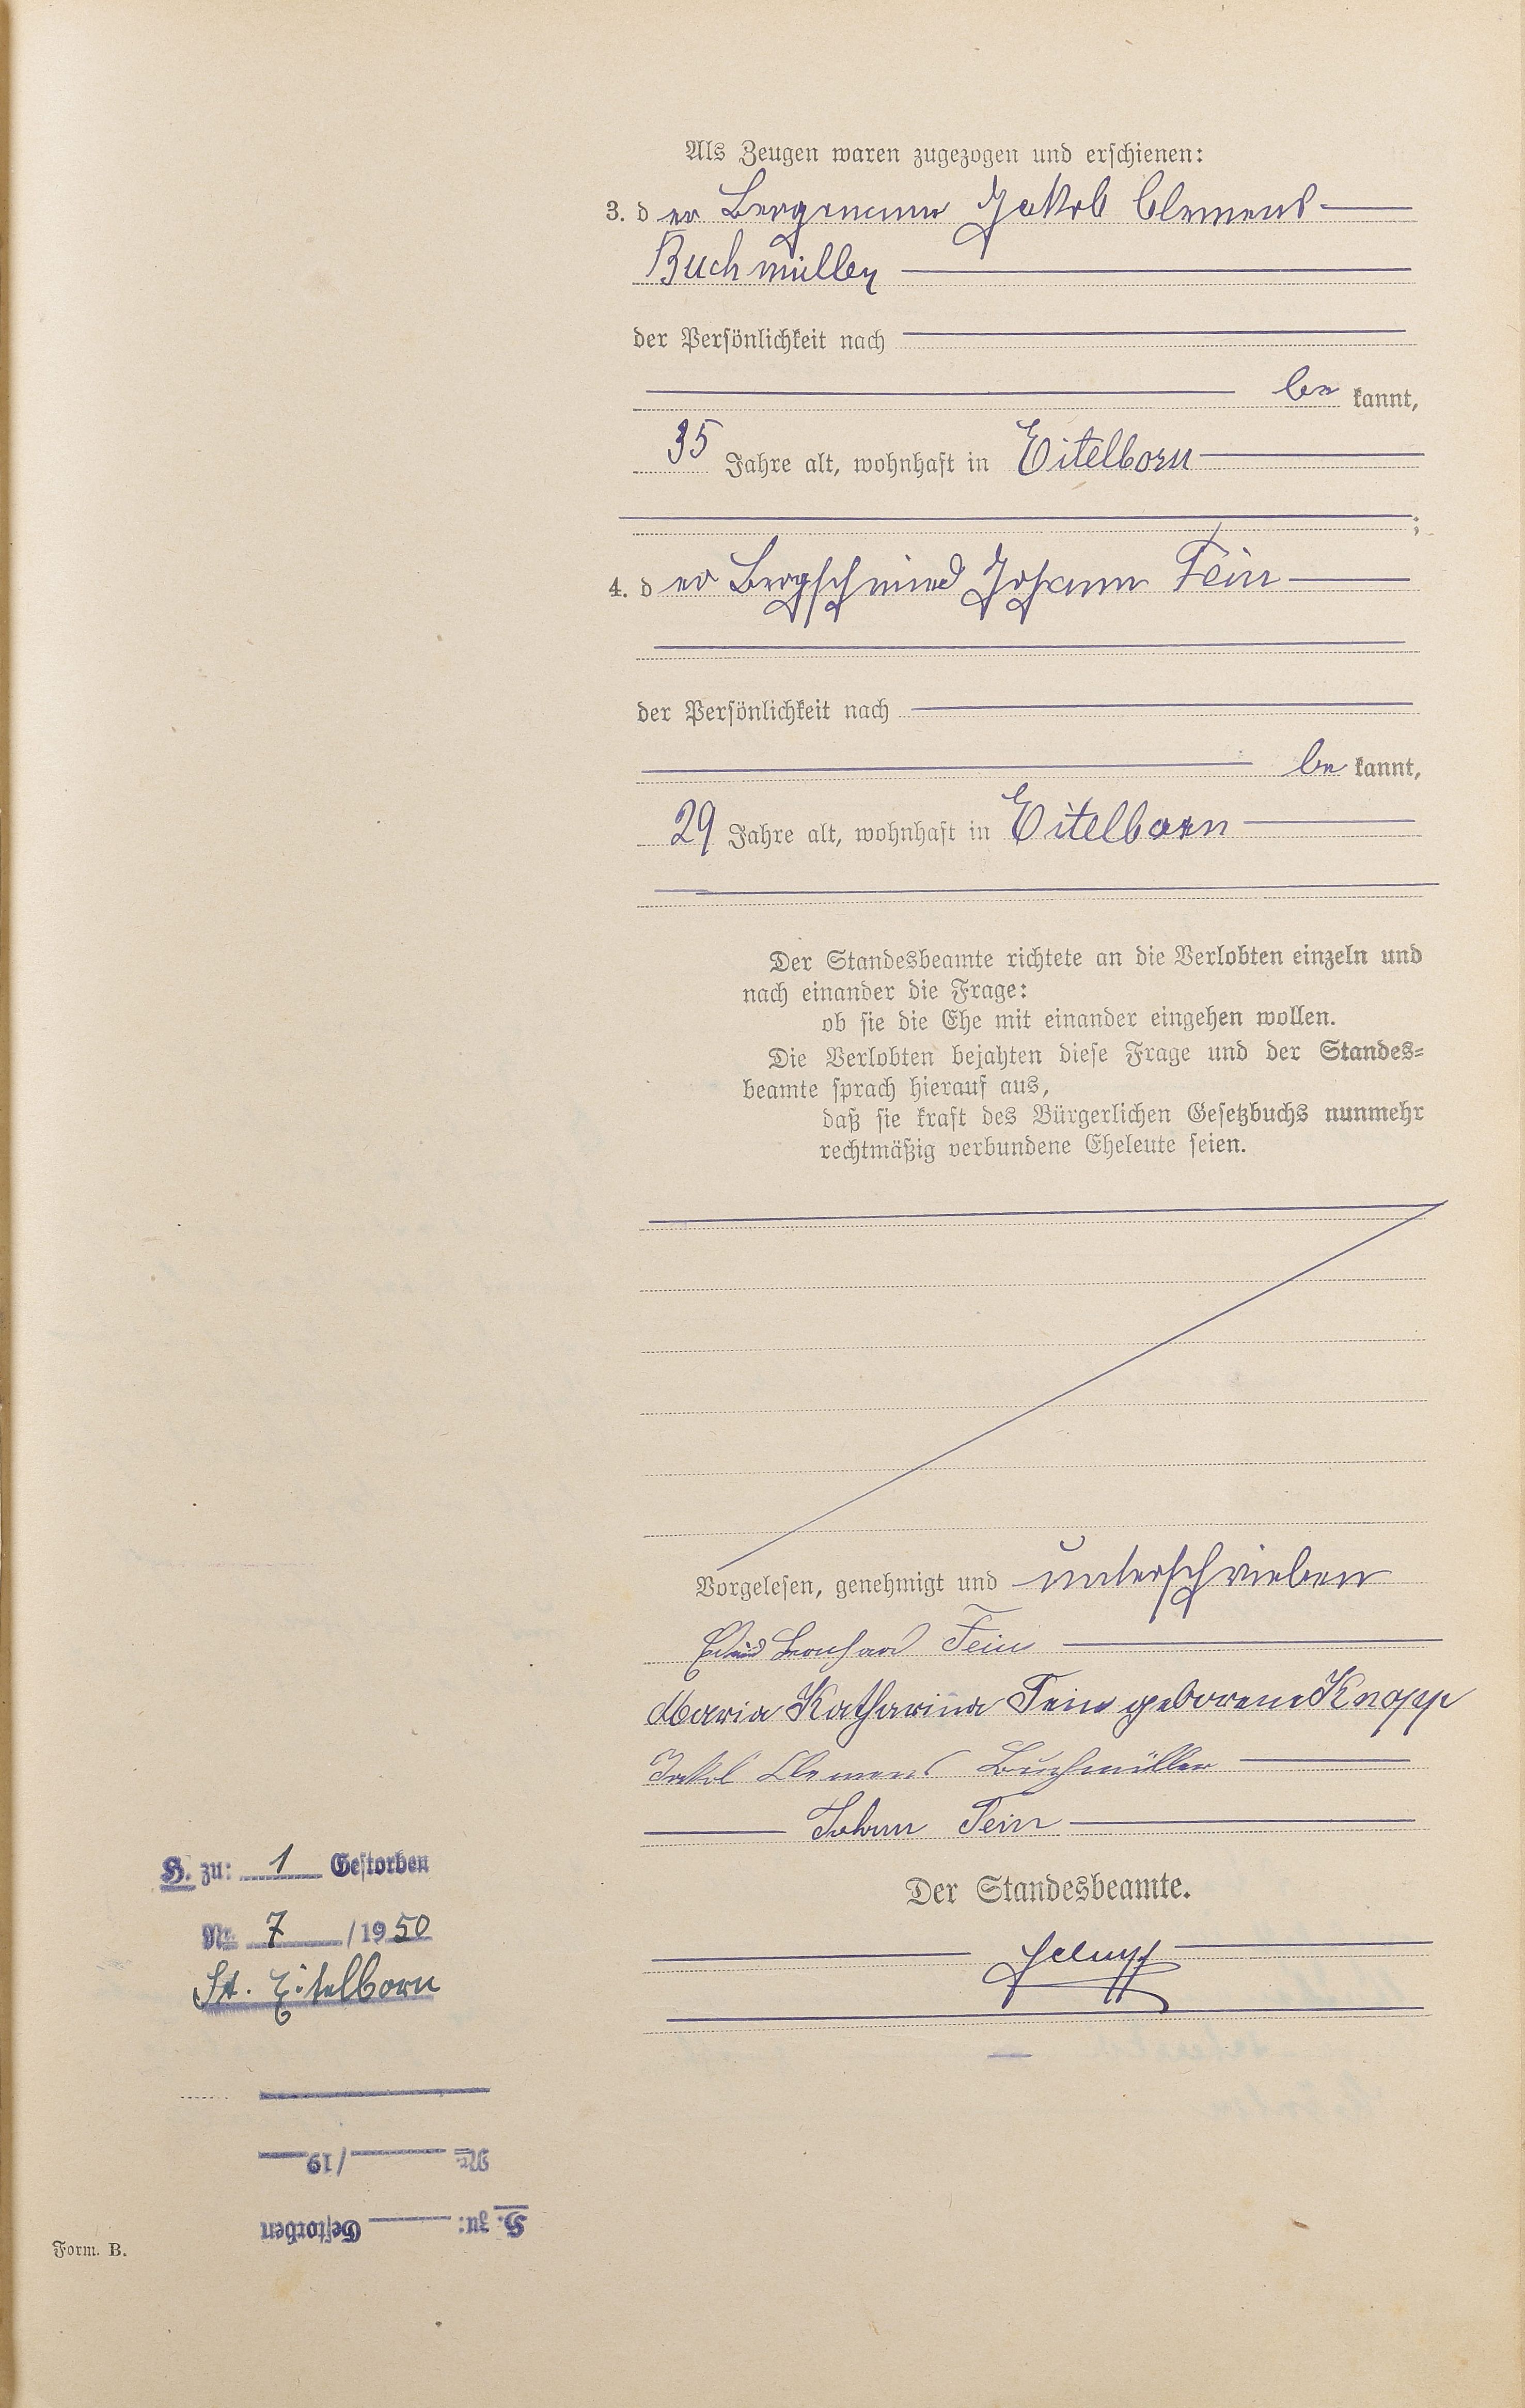 Als Zeugen waren zugezogen und erschienen:
3. d er Bergmann Jakob Clemens
Buchmüller
der Persönlichkeit nach
be kannt,
35 Jahre alt, wohnhaft in Eitelborn
;
4. d er Bergschmied Johann Fein
der Persönlichkeit nach
be kannt,
29 Jahre alt, wohnhaft in Eitelborn
Der Standesbeamte richtete an die Verlobten einzeln und
nach einander die Frage:
ob sie die Ehe mit einander eingehen wollen.
Die Verlobten bejahten diese Frage und der Standes=
beamte sprach hierauf aus,
daß sie kraft des Bürgerlichen Gesetzbuchs nunmehr
rechtmäßig verbundene Eheleute seien.
Vorgelesen, genehmigt und unterschrieben
Fein
Maria Katharina Fein geborene Knopp
Jakob Clemens Buchmüller
Johann Fein
Der Standesbeamte.
H. zu: 1 Gestorben
Nr. 7 /1950
St. Eitelborn
Nr. /19
H. zu: Gestorben
Form. B.